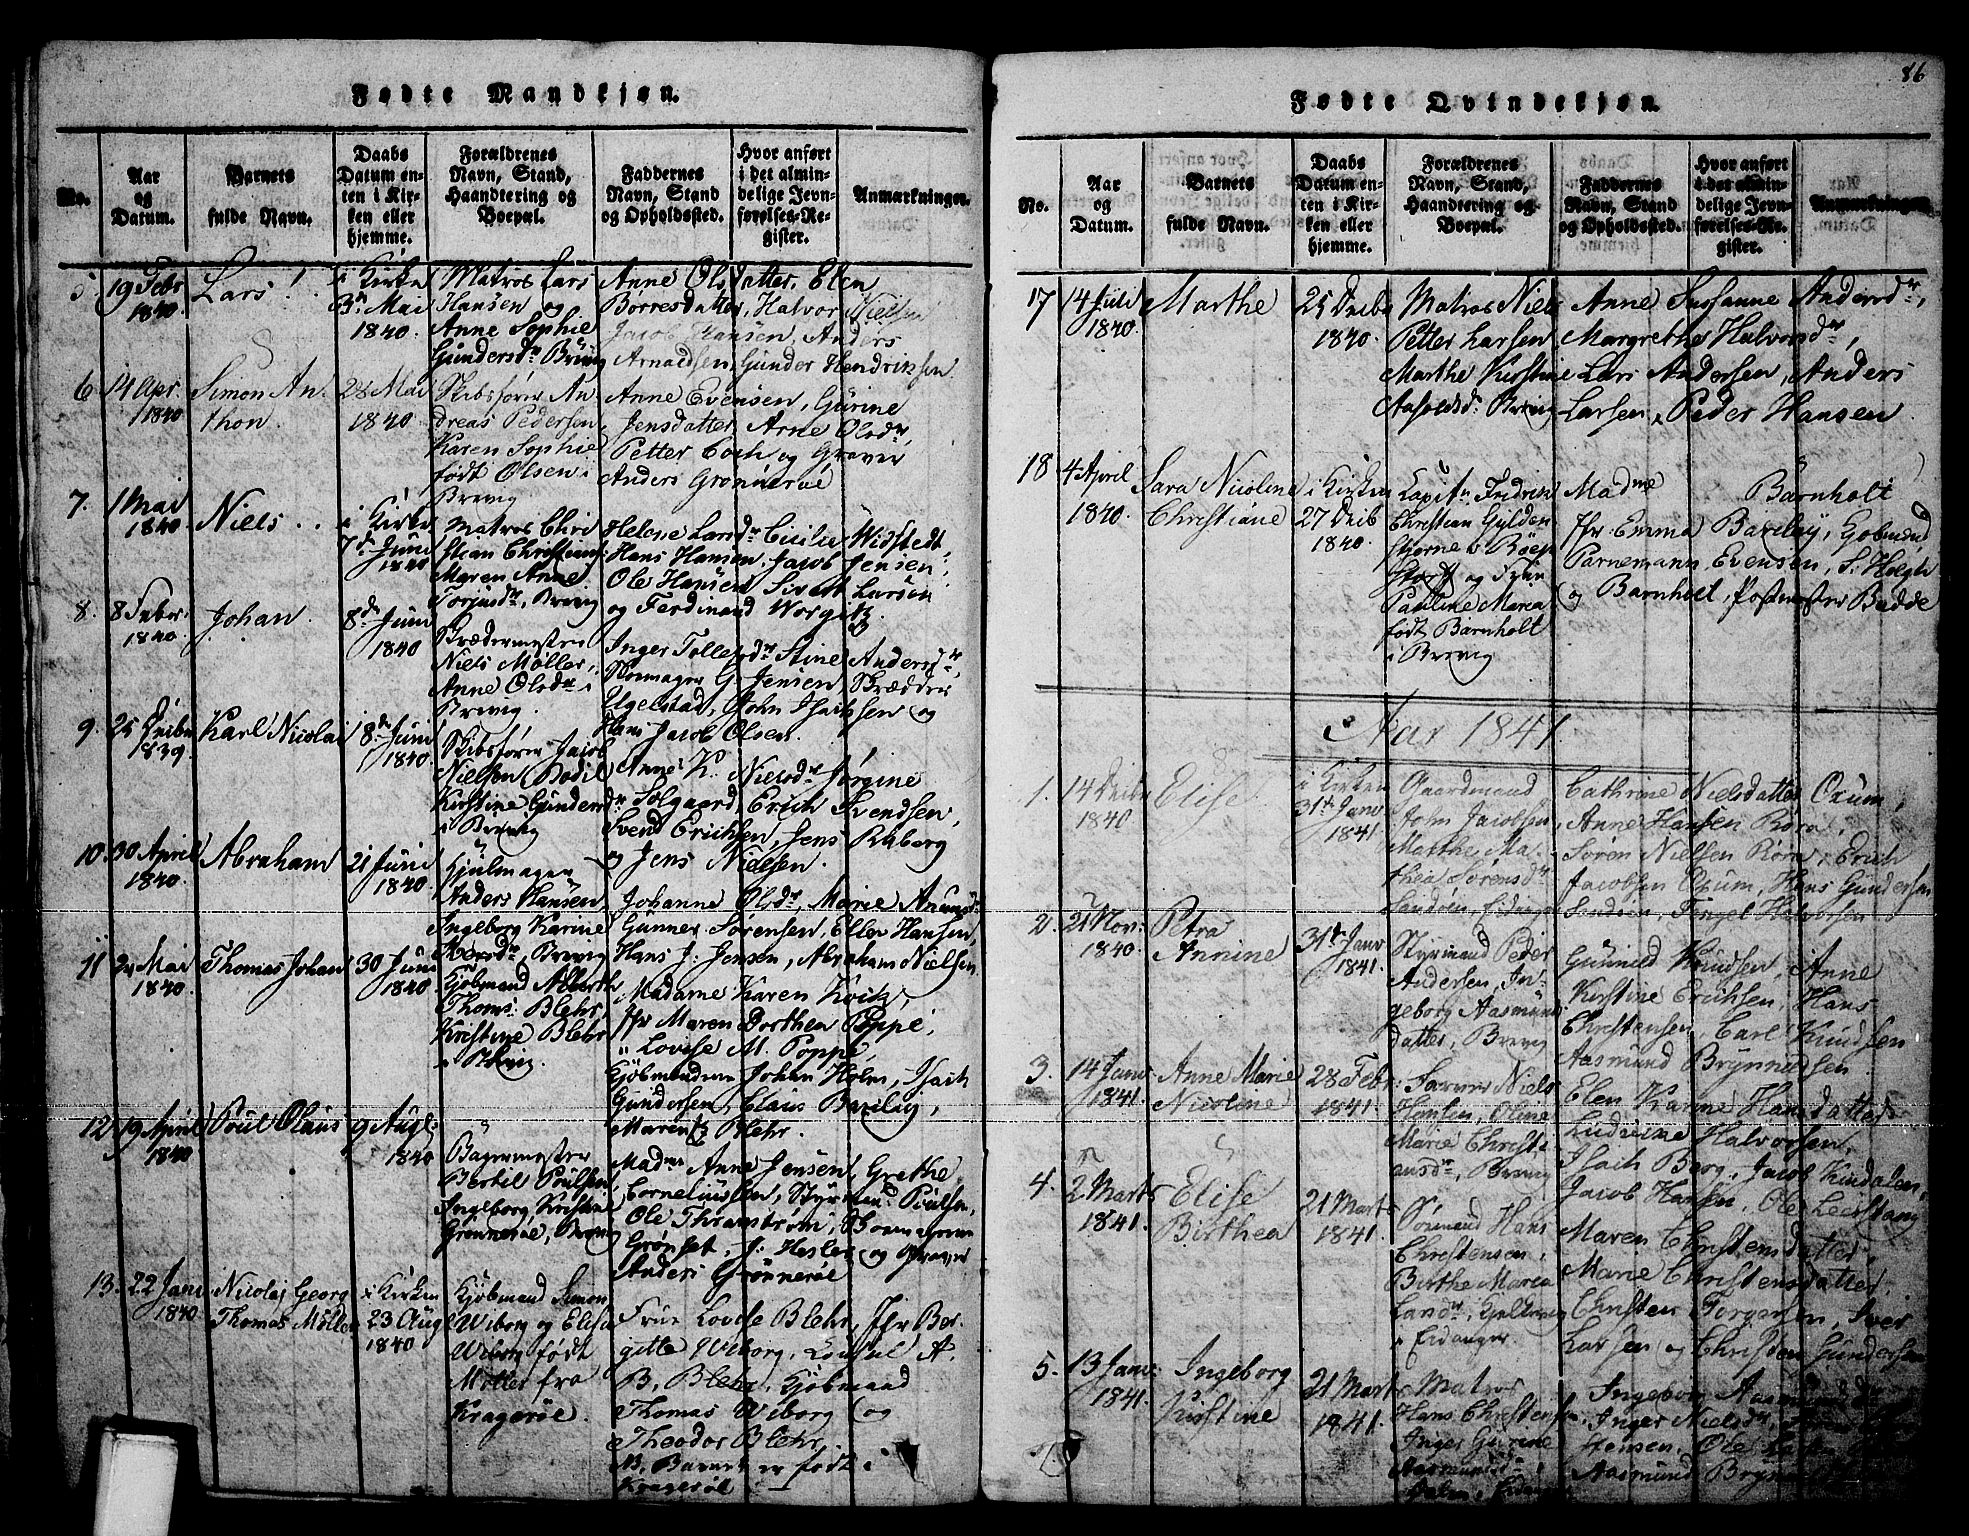 Fødte Mandkjøn.
No.
Aar
og
Datum.
Barnets
fulde Navn.
Daabs
Datum en-
ten i Kir-
ken eller
hjemme.
Forældrenes
Navn, Stand,
Haandtering og
Boepæl.
Faddernes
Navn, Stand
og Opholdssted.
Hvor anført
i det almin-
delige Jevn-
førelses-Re-
gister.
Anmærkninger.
5.
19 Febr
1840
Lars
i Kirke
3de Mai
1840
Matros Lars
Hansen og
Anne Sophie
Gundersdr Brevig
Anne Olsdatter, Elen
Borresdatter, Halvor Nielsen
Jacob Hansen, Anders
Arnaldsen, Gunder Hendriksen
6
1840
Simon An
thon.
28 Mai
1840
Skibsfører An
dreas Pedersen
Karen Sophie
født Olsen i
Brevig
Anne Evensen, Gurine
Jensdatter, Arne Olsdr,
Petter Coch og Graver
Anders Grønnerøe
7.
1 Mai
1840
Niels
i Kirke
7de Juni
1840
Matros Chri
stian Christians
Maren Anne
Torjusdr, Brevig
Helene Larsdr Cicilie Widstedt,
Hans Hansen, Jacob Jensen,
Ole Hansen Sivert Larsen
og Ferdinand Worgitz.
8.
8 Febr.
1840.
Johan.
8de Juni
1840
Skrædermester
Niels Møller,
Anne Olsdr i
Brevig.
Inger Tollefsdr Stine Andersdr,
Skomager G. Jensen Skrædder
Ugelstad, John Isachsen og
Hans Jacob Olsen.
9.
25 Decbr
1839.
Karl Nicolai
8de Juni
1840
Skibsfører Jacob
Nielsen Bodil
Kirstine Gundersdr
i Brevig
Anne K. Nielsdr Jørgine
Solgaard, Erich Svendsen,
Svend Erichsen, Jens Raborg
og Jens Nielsen.
10.
30 April
1840.
Abraham
21 Juni
1840.
Anders Hansen,
Ingeborg Karine
Brevig
Johanne Olsdr, Marie Amundsdr
Gunner Sørensen, Ellen Hansen,
Hans J. Jensen, Abraham Nielsen
11
Mai
1840.
Thomas Johan
30 Juni
1840
Kjøbmand Albert
Thoms. Blehr,
Kristine Blehr
i Brevig.
Madame Karen Koitz,
Jfr Maren Dorthea Poppe,
" Lovise M. Poppe,
Kjøbmændene Johan Holm, Isach
Gundersen, Claus Barclay,
Maren Blehr.
12
19 April
1840
Poul Olaus
9 Aug.
1840
Bagermester
Bertil Poulsen,
Ingeborg Kristine
Grønnerøe, Brevig
Madme Anne Jensen, Grethe
Corneliussen, Styrmand Poulsen,
Ole Thranstrøm,
Grønset, J. Hesler og Graver
Anders Grønnerøe
13.
22 Janr
1840.
Nicolaj Georg
Thomas Møller
i Kirken
23 Aug
1840
Kjøbmand Simon
Wiborg og Elise
Wiborg født
Møller fra
Kragerøe.
Frue Lovise Blehr, Jfr Ber
gitte Wiborg, Consul A.
B. Blehr, Kjøbmand
Thomas Wiborg og
Theodor Blehr.
NB. Barnet er født i
Kragerøe
86
Fødte Qvindekjøn.
No.
Aar
og
Datum.
Barnets
fulde Navn.
Daabs
Datum en-
ten i Kir-
ken eller
hjemme.
Forældrenes
Navn, Stand,
Haandtering og
Boepæl.
Faddernes
Navn, Stand
og Opholdssted.
Hvor anført
i det almin-
delige Jevn-
førelses-Re-
gister.
Anmærkninger.
17
14 Juli
1840.
Marthe
25 Decbr
1840.
Matros Niels
Petter Larsen
Marthe Kirstine
Brevig
Anne Susanne Andersdr,
Margrethe Halvorsdr,
Lars Andersen, Anders
Larsen, Peder Hansen
18
4 April
1840.
Sara Nicoline
Christiane
i Kirken
27 Decbr
1840.
Capitn Fredrik
Christian Gylden
stjerne
og Frue
Pauline Maria
født Barnholt
i Brevig
Madme Barnholt
Jfr: Emma Barclay,
Parnemann, Evensen,
og Barnholt, Postmester Budde
Aar 1841.
1.
14 Decbr
1840
Elise
i Kirken
31te Janr
1841.
Gaardmand
John Jacobsen,
Marthe Ma-
thea Sørensdr
Sandøen, Eidanger
Cathrine Nielsdatter Oxum,
Anne Hansen Røra,
Søren Nielsen Røra, Erich
Jacobsen Oxum, Hans Gundersen
Sandøen, Halvorsen
2.
21 Nov:
1840.
Petra
Annine
31te Janr
1841.
Styrmand Peder
Andersen, In-
geborg Aasmunds
datter, Brevig
Gunnild Knudsen, Anne
Kirstine Erichsen, Hans
Christensen, Carl Knudsen
Aasmund Brynnildsen
3.
14 Janr
1841.
Anne Marie
Nicoline
28 Febr
1841.
Farver Niels
Hansen, Oline
Marie Christi-
ansdr, Brevig
Elen Karine Hansdatter
Halvorsen,
Isach Berg, Jacob Kindalen,
Jacob Hansen, Ole Leerstang
4.
2 Marts
1841.
Elise
Birthea
21 Marts
1841.
Sømand Hans
Christensen,
Birthe Maria
i Eidanger.
Maren Christensdatter
Marie Christensdatter,
Christen Torgersen, Iver
Larsen og Christen Gundersen
5.
13 Janr
1841.
Ingeborg
Kirstine
21 Mart
1841.
Matros
Hans Christensen,
Inger Gurine
Aasmundsdr
Eidanger
Ingeborg Aasmundsdr
Inger Nielsdr,
Jensen, Ole
Aasmund